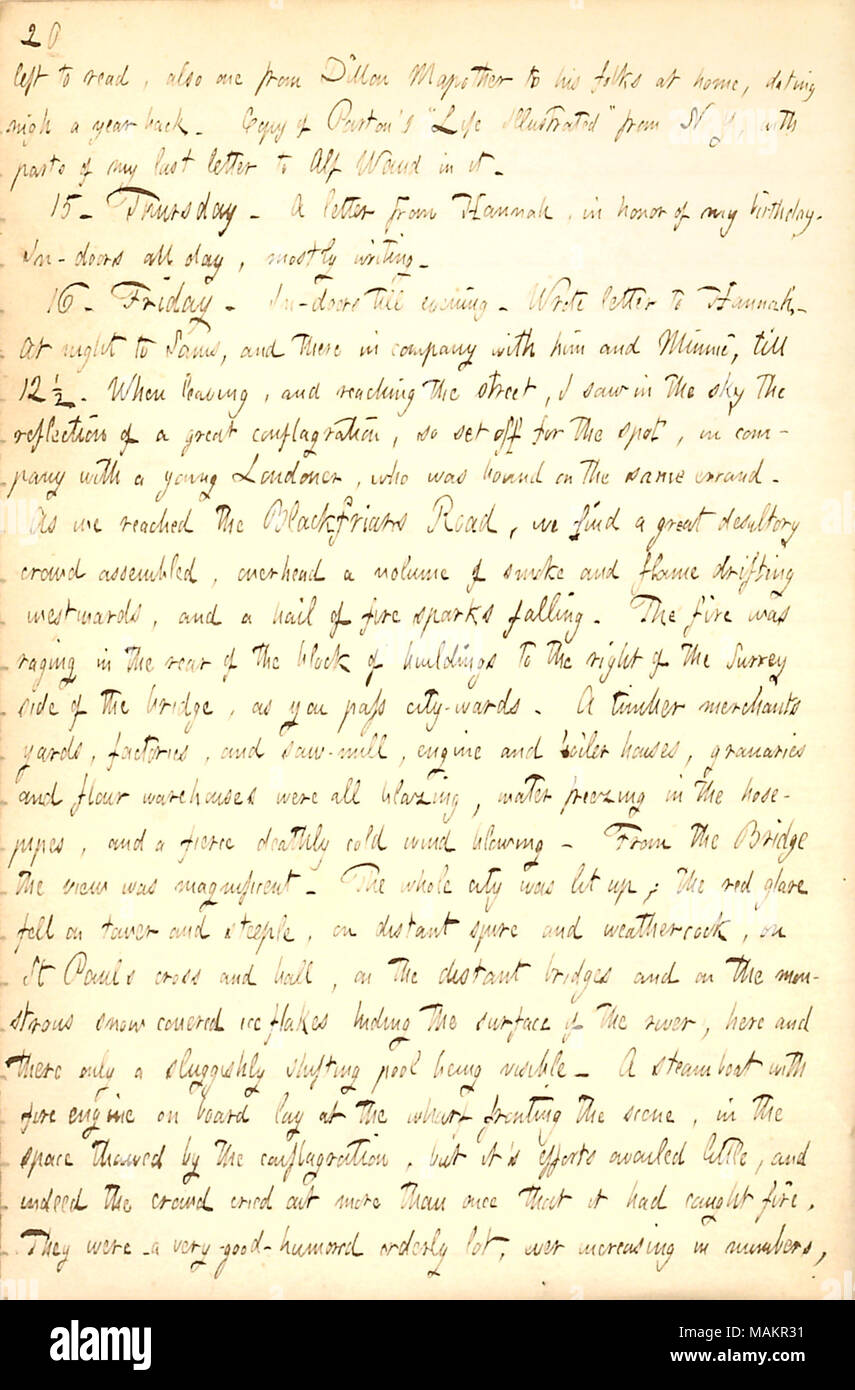 20
left to read, also one from Dillon Mapother to his folks at home, dating
nigh a year back. Copy of Parton's "Life Illustrated" from N. Y., with
parts of my last letter to Alf Waud in it.
15. Thursday. A letter from Hannah, in honor of my birthday.
In-doors all day, mostly writing.
16. Friday. In-doors till evening. Wrote letter to Hannah.
At night to Sams, and there in company with him and Minnie, till
12 ½. When leaving, and reaching the street, I saw in the sky the
reflection of a great conflagration, so set off for the spot, in com-
pany with a young Londoner, who was bound on the same errand.
As we reached the Blackfriars Road, we find a great desultory
crowd assembled, overhead a volume of smoke and flame drifting
westwards, and a hail of fire sparks falling. The fire was
raging in the rear of the block of buildings to the right of the Surrey
side of the bridge, as you pass city-wards. A timber merchants
yards, factories, and saw-mill, engine and boiler houses, granaries
and flour warehouses were all blazing, water freezing in the hose-
pipes, and a fierce deathly cold wind blowing. From the Bridge
the view was magnificent. The whole city was lit up; the red glare
fell on tower and steeple, on distant spire and weathercock, on
St Pauls cross and ball, on the distant bridges and on the mon-
strous snow covered ice flakes hiding the surface of the river, here and
there only a sluggishly shifting pool being visible. A steamboat with
fire engine on board lay at the wharf fronting the scene, in the
space thawed by the conflagration, but it's efforts availed little, and
indeed the crowd cried out more than once that it had caught fire.
They were a very good-humored orderly lot, ever increasing in numbers,
alamy
Image ID: MAKR31
www.alamy.com